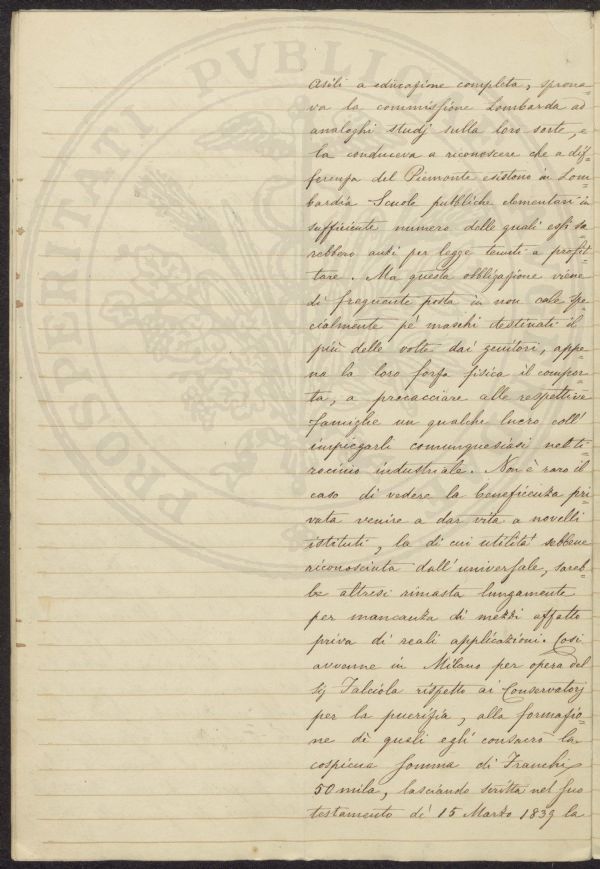 Asili a educazione completa, sprona=
va la commissione Lombarda ad
analoghi studj sulla loro sorte, e
la conduceva a riconoscere che a dif=
ferenza del Piemonte esistono in Lom=
bardia Scuole pubbliche elementari in
sufficiente numero delle quali essi sa
rebbero anzi per legge tenuti a profit=
tare. Ma questa obbligazione viene
di frequente posta in non cale spe
cialmente pe' maschi destinati il
più delle volte dai genitori, appe=
na la loro forza fisica il compor=
ta, a procacciare alle respettive
famiglie un qualche lucro coll'
impiegarli comunquesiasi nel ti=
rocinio industriale. Non è raro il
caso di vedere la beneficenza pri=
vata venire a dar vita a novelli
istituti, la di cui utilità sebbene
riconosciuta dall'universale, sareb=
be altresi rimasta lungamente
per mancanza di mezzi affatto
priva di reali applicazioni. Così
avvenne in Milano per opera del
Sig Falciola rispetto ai Conservatorj
per la puerizia, alla formazio=
ne di quali egli consacrò la
cospicua somma di Franchi
50 mila, lasciando scritta nel suo
testamento di 15 Marzo 1839 la
PROSPERITATI PVBLIC